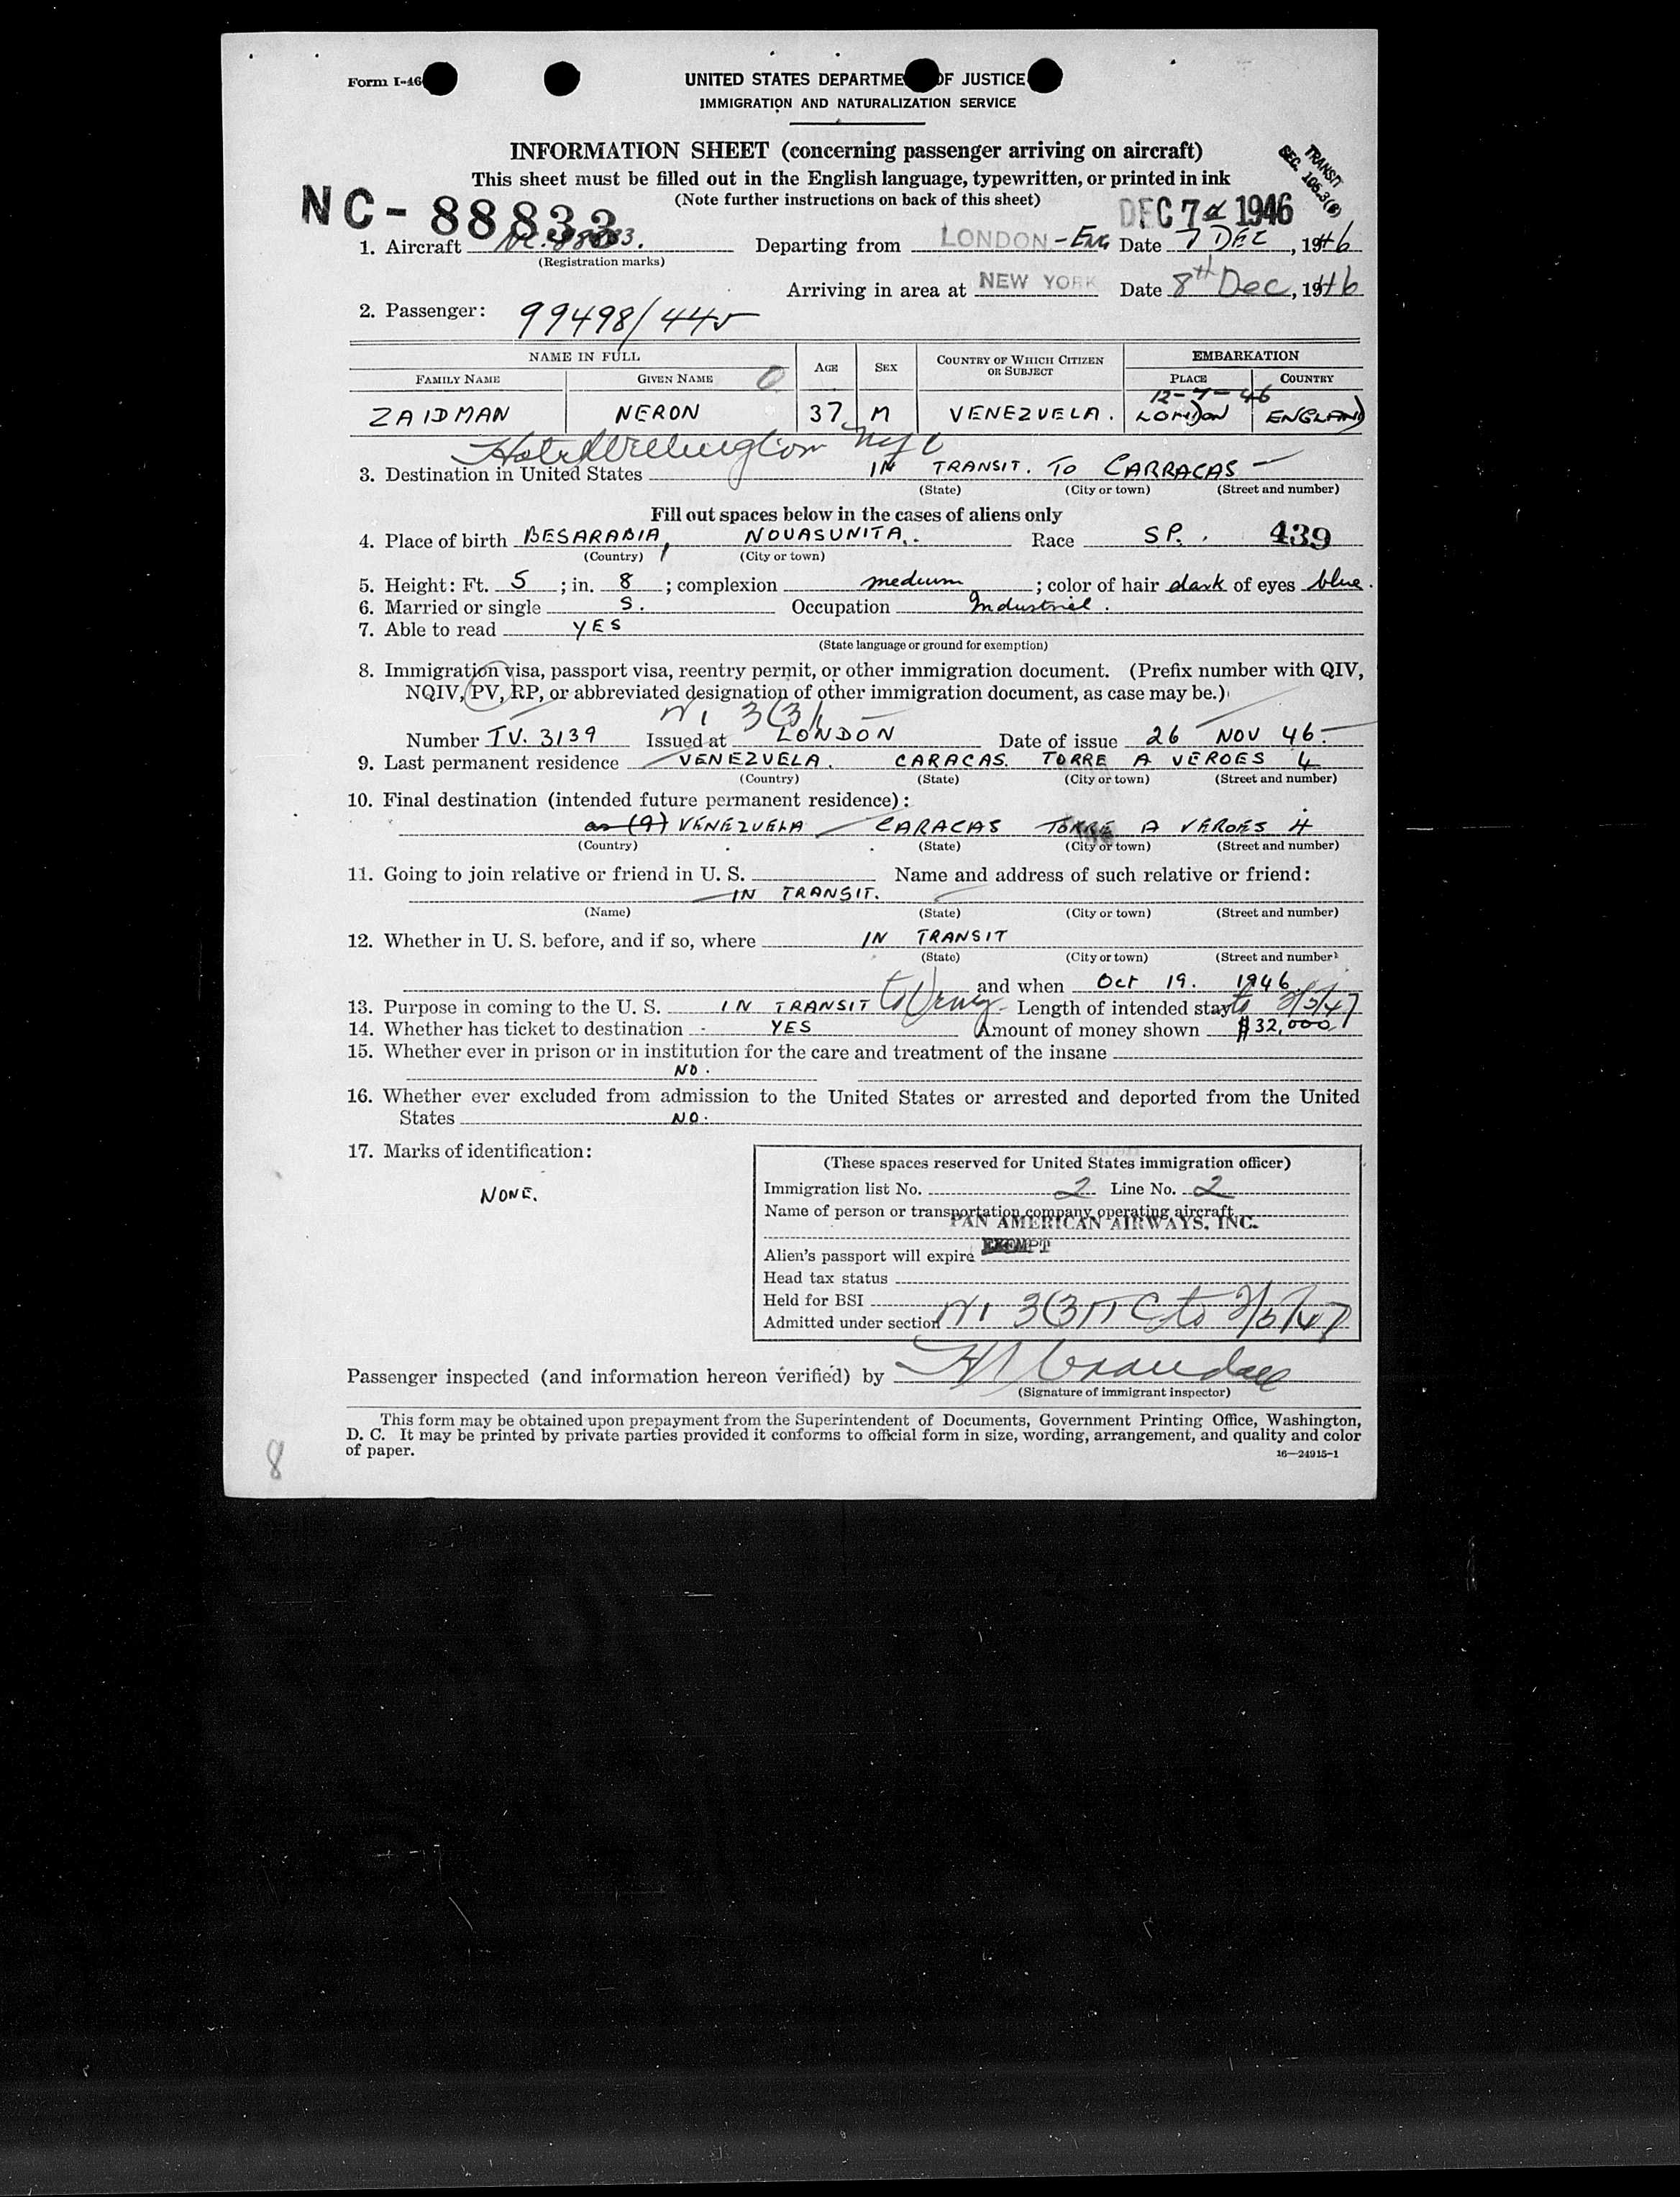 Form I-46
UNITED STATES DEPARTME OF JUSTICE
IMMIGRATION AND NATURALIZATION SERVICE
INFORMATION SHEET (concerning passenger arriving on aircraft)
TRANSIT
SEC. 105.3(8)
This sheet must be filled out in the English language, typewritten, or printed in ink
(Note further instructions on back of this sheet)
NC-88833
DEC 7 1946
1. Aircraft NC.88833. Departing from LONDON-ENG Date 7 DEC, 1946
(Registration marks)
Arriving in area at NEW YORK Date 8th Dec, 1946
2. Passenger: 99498/445
NAME IN FULL AGE SEX COUNTRY OF WHICH CITIZEN OR SUBJECT EMBARKATION
FAMILY NAME GIVEN NAME PLACE COUNTRY
12-7-46
ZAIDMAN NERON 37 M VENEZUELA. LONDON ENGLAND
Hotel Wellington NYC
3. Destination in United States IN TRANSIT. TO CARRACAS-
(State) (City or town) (Street and number)
Fill out spaces below in the cases of aliens only
4. Place of birth BESARABIA, NOUASUNITA. Race SP. 439
(Country) (City or town)
5. Height: Ft. 5; in. 8; complexion medium; color of hair dark of eyes blue.
6. Married or single S. Occupation Industriel.
7. Able to read YES
(State language or ground for exemption)
8. Immigration visa, passport visa, reentry permit, or other immigration document. (Prefix number with QIV,
NQIV, PV, RP, or abbreviated designation of other immigration document, as case may be.)
Number TV. 3139 Issued at LONDON Date of issue 26 NOV 46.
9. Last permanent residence VENEZUELA. CARACAS. TORRE A VEROES 4
(Country) (State) (City or town) (Street and number)
10. Final destination (intended future permanent residence):
as (9) VENEZUELA CARACAS TORRE A VEROES 4
(Country) (State) (City or town) (Street and number)
11. Going to join relative or friend in U. S. Name and address of such relative or friend:
IN TRANSIT.
(Name) (State) (City or town) (Street and number)
12. Whether in U. S. before, and if so, where IN TRANSIT
(State) (City or town) (Street and number)
and when Oct 19. 1946.
13. Purpose in coming to the U. S. IN TRANSIT Length of intended stay to 2/5/47
14. Whether has ticket to destination - YES Amount of money shown $32,000
15. Whether ever in prison or in institution for the care and treatment of the insane
NO.
16. Whether ever excluded from admission to the United States or arrested and deported from the United
States NO.
17. Marks of identification:
NONE.
(These spaces reserved for United States immigration officer)
Immigration list No. 2 Line No. 2
Name of person or transportation company operating aircraft
PAN AMERICAN AIRWAYS, INC.
Alien's passport will expire EXEMPT
Head tax status
Held for BSI
Admitted under section to 2/5/47
Passenger inspected (and information hereon verified) by
(Signature of immigrant inspector)
This form may be obtained upon prepayment from the Superintendent of Documents, Government Printing Office, Washington,
D. C. It may be printed by private parties provided it conforms to official form in size, wording, arrangement, and quality and color
of paper.
16—24915-1
8